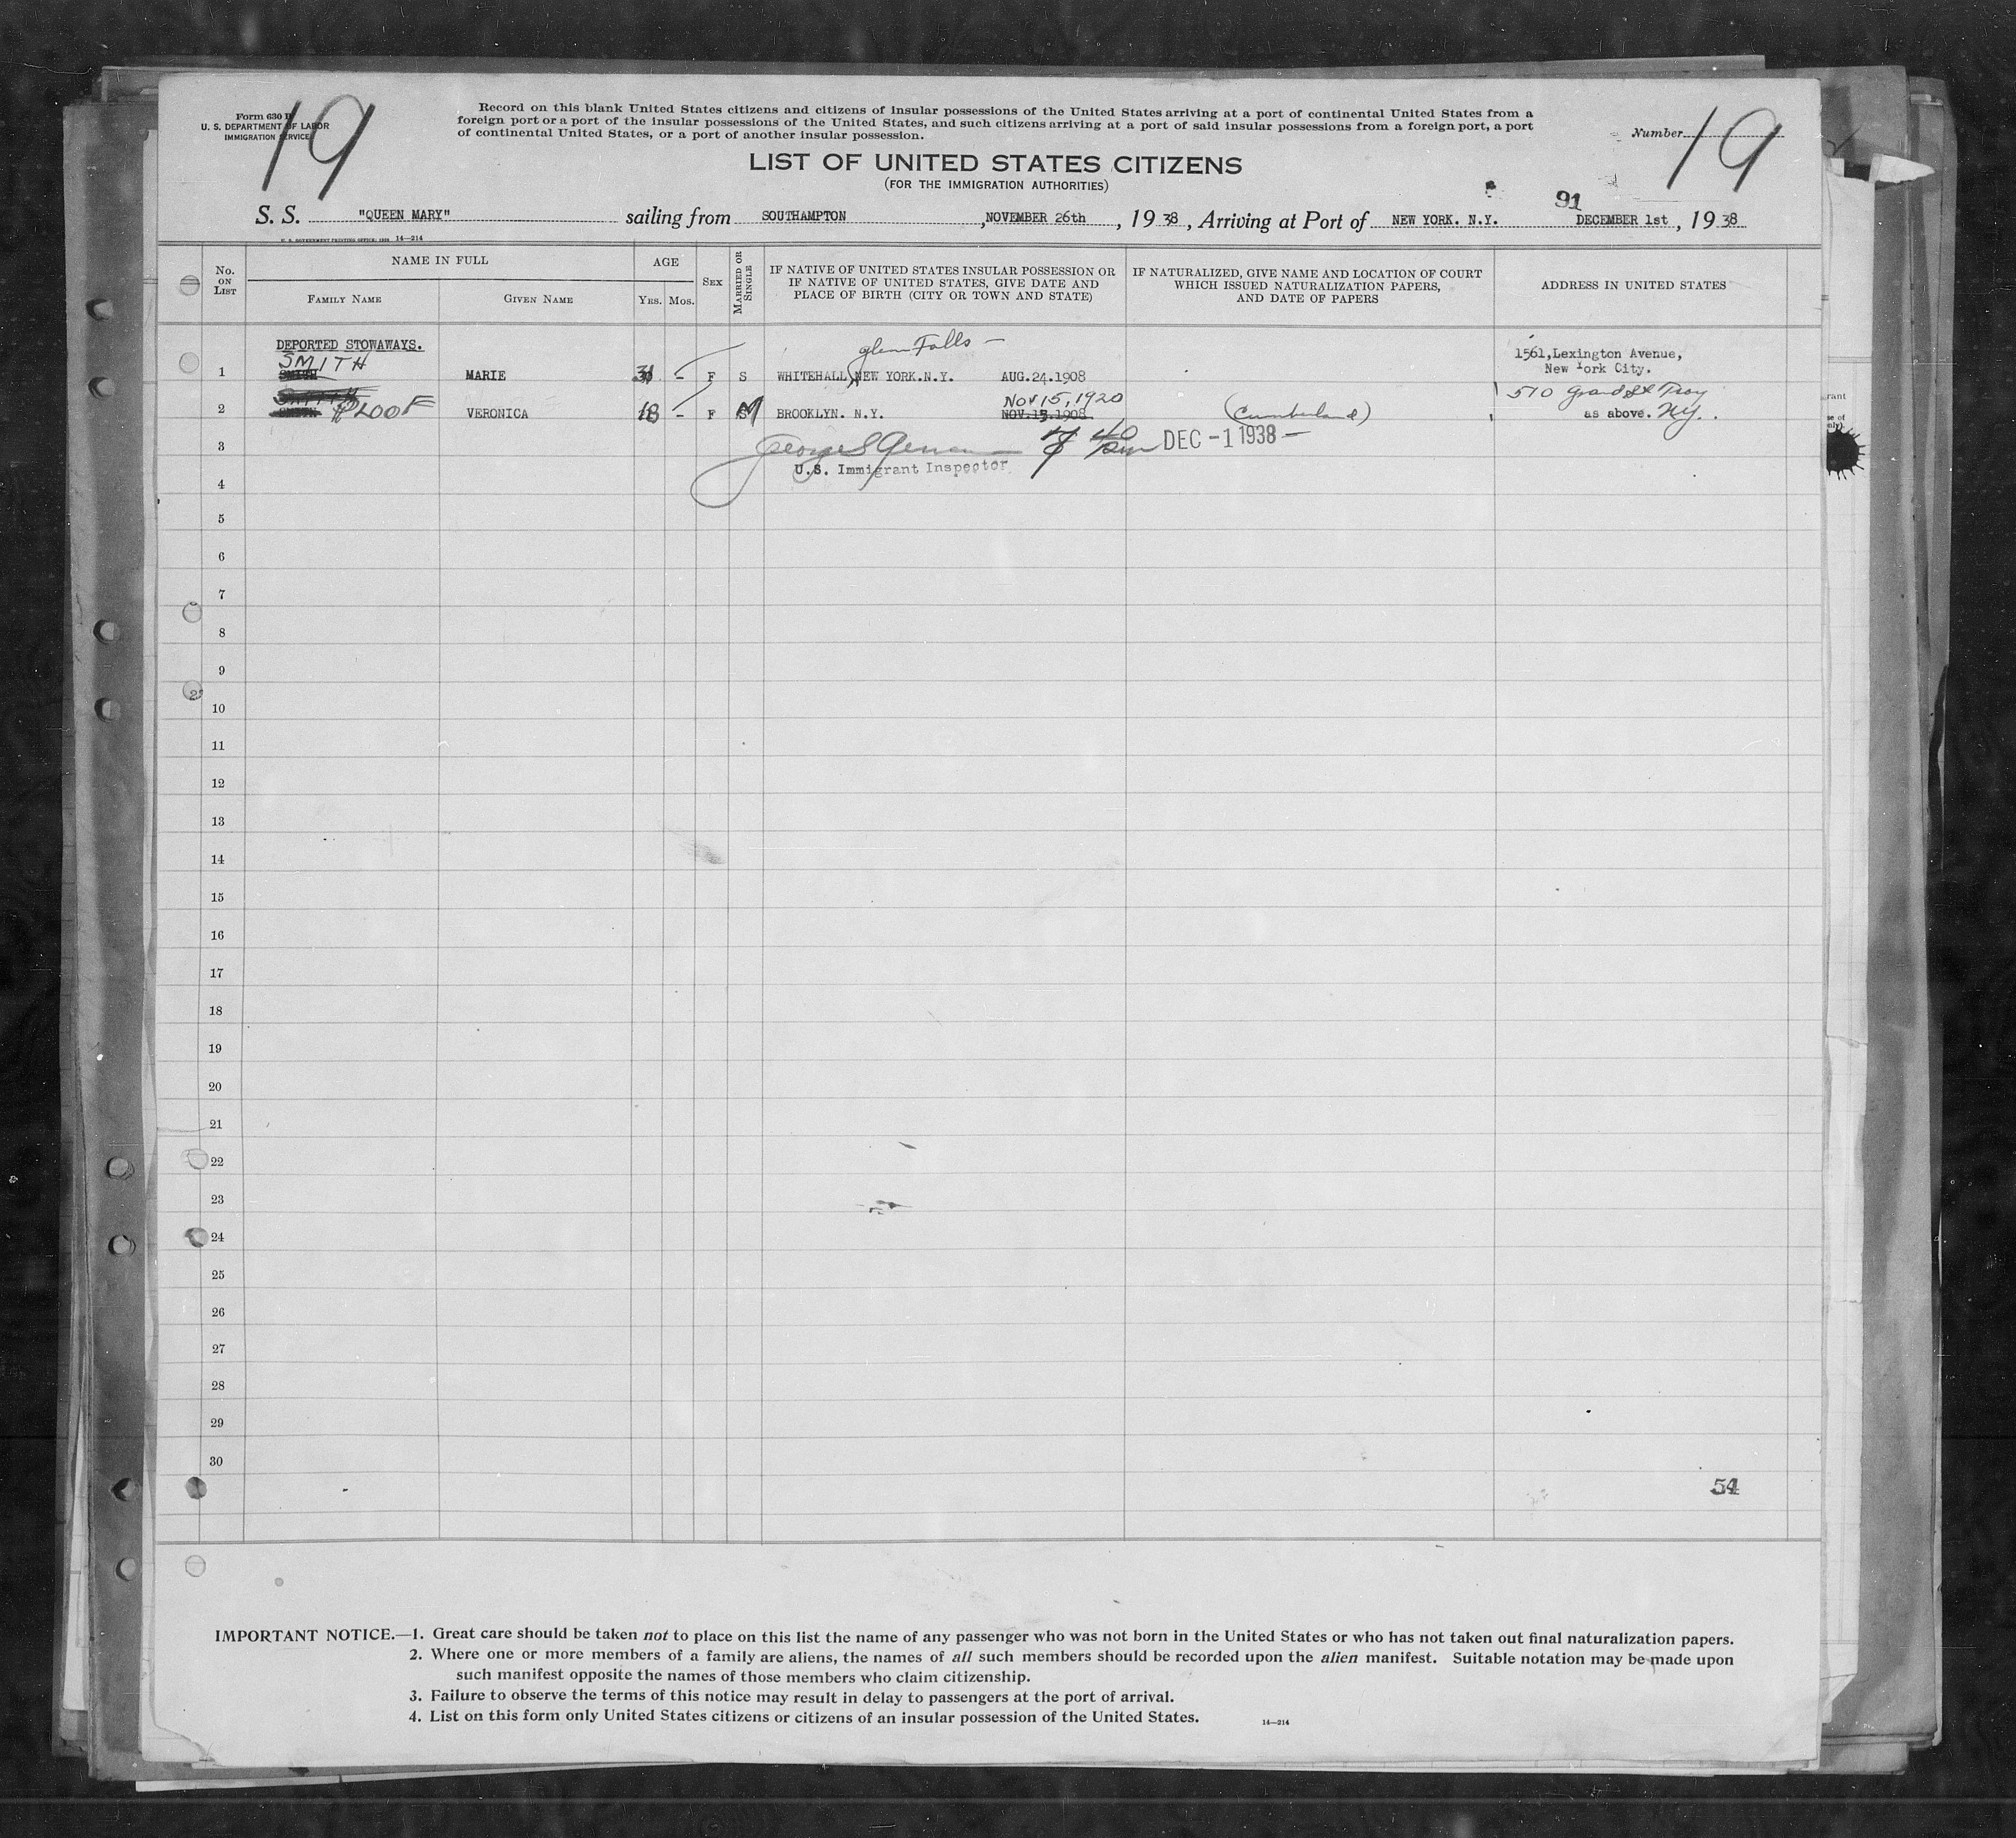 Form 630 B
U. S. DEPARTMENT OF LABOR
IMMIGRATION SERVICE
19
Record on this blank United States citizens and citizens of insular possessions of the United States arriving at a port of continental United States from a
foreign port or a port of the insular possessions of the United States, and such citizens arriving at a port of said insular possessions from a foreign port, a port
of continental United States, or a port of another insular possession.
Number 19
LIST OF UNITED STATES CITIZENS
(FOR THE IMMIGRATION AUTHORITIES)
91
S. S. "QUEEN MARY" sailing from SOUTHAMPTON, NOVEMBER 26th, 1938, Arriving at Port of NEW YORK. N.Y. DECEMBER 1st, 1938
14—214
No. ON LIST
NAME IN FULL
FAMILY NAME GIVEN NAME
AGE
YRS. MOS.
SEX
MARRIED OR SINGLE
IF NATIVE OF UNITED STATES INSULAR POSSESSION OR
IF NATIVE OF UNITED STATES, GIVE DATE AND
PLACE OF BIRTH (CITY OR TOWN AND STATE)
IF NATURALIZED, GIVE NAME AND LOCATION OF COURT
WHICH ISSUED NATURALIZATION PAPERS,
AND DATE OF PAPERS
ADDRESS IN UNITED STATES
DEPORTED STOWAWAYS.
glenn Falls —
SMITH
1561,Lexington Avenue,
1 SMITH MARIE - F S WHITEHALL NEW YORK.N.Y. AUG.24.1908
New York City.
Nov 15, 1920
510 Grand St Troy
2 SMITH PLOOF VERONICA 18 - F M BROOKLYN. N.Y. NOV.15.1908 (Cumberland) as above. NY.
3 DEC -1 1938 —
U.S. Immigrant Inspector
4
5
6
7
8
9
10
11
12
13
14
15
16
17
18
19
20
21
22
23
24
25
26
27
28
29
30
54
IMPORTANT NOTICE.—1. Great care should be taken not to place on this list the name of any passenger who was not born in the United States or who has not taken out final naturalization papers.
2. Where one or more members of a family are aliens, the names of all such members should be recorded upon the alien manifest. Suitable notation may be made upon
such manifest opposite the names of those members who claim citizenship.
3. Failure to observe the terms of this notice may result in delay to passengers at the port of arrival.
4. List on this form only United States citizens or citizens of an insular possession of the United States.
14—214